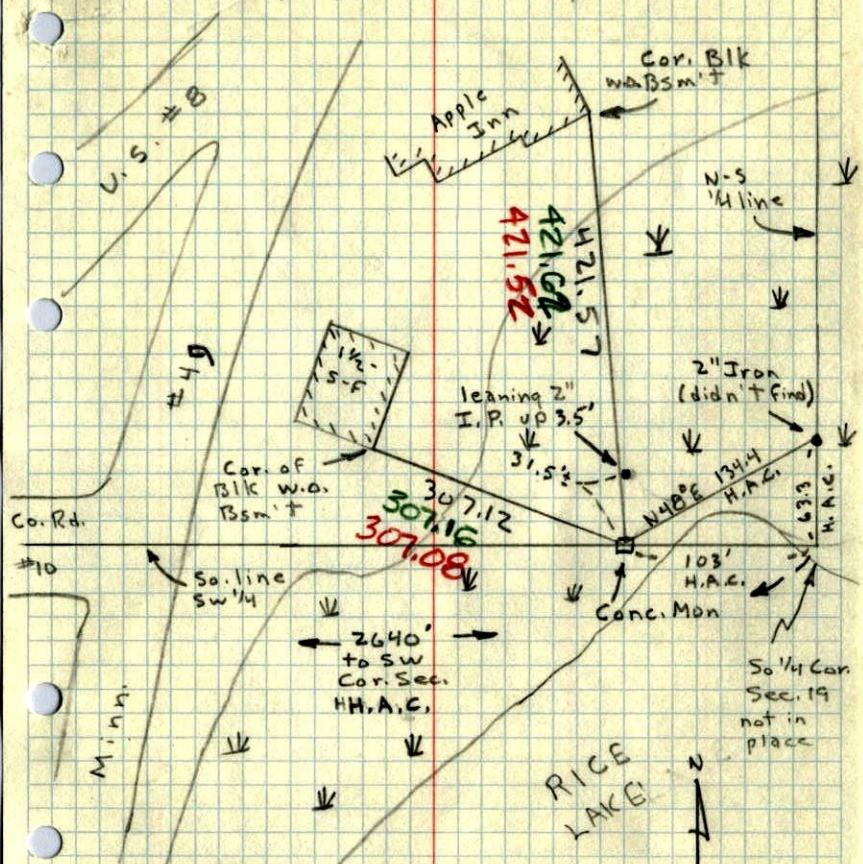 U.S. #8
Apple
Inn
Cor. Blk
w.o. Bsm't
N-S
1/4 line
421.57
421.62
421.52
#49
1 1/2-
S-F
leaning 2"
I.P. up 3.5'
2" Iron
(didn't find)
31.5'±
Cor. of
Blk w.o.
Bsm't
307.12
307.16
307.08
N48°E 134.4
H.A.C.
63.3
H.A.C.
Co. Rd.
#10
So. line
SW 1/4
103'
H.A.C.
Conc. Mon
2640'
to SW
Cor. Sec.
H.A.C.
So 1/4 Cor.
Sec. 19
not in
place
Minn.
RICE
LAKE
N